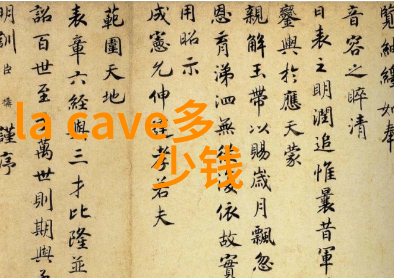 la cave多
少钱
覽紬繹如奉
音容之晬清
日表之明潤追惟曩昔軍
鑾輿於應天蒙
親解玉帶以賜歲月飄忽
恩育涕泗無依故實
用昭示
成憲允伸孝若夫
範圍天地
表章六經與三才比隆並
詔百世至萬世則期與
明訓臣構謹序